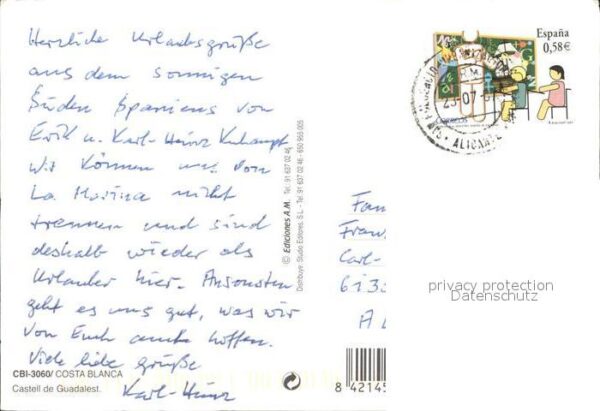 Herzliche Urlaubsgrüße
aus dem sonnigen
Süden Spaniens von
Erik u. Karl-Heinz
Wir können uns von
La Marina nicht
trennen und sind
deshalb wieder als
Urlauber hier. Ansonsten
geht es uns gut, was wir
von Euch auch hoffen.
Viele liebe Grüße
Karl-Heinz
CBI-3060/ COSTA BLANCA
Castell de Guadalest.
© Ediciones A.M. Tel.: 91 637 02 46
Distribuye: Studio Editores S.L. - Tel. 91 637 02 46 - 650 955 005
España
0,58€
ALICANTE
Fam
Fran
Carl-
6135
A L
privacy protection
Datenschutz
8 42145